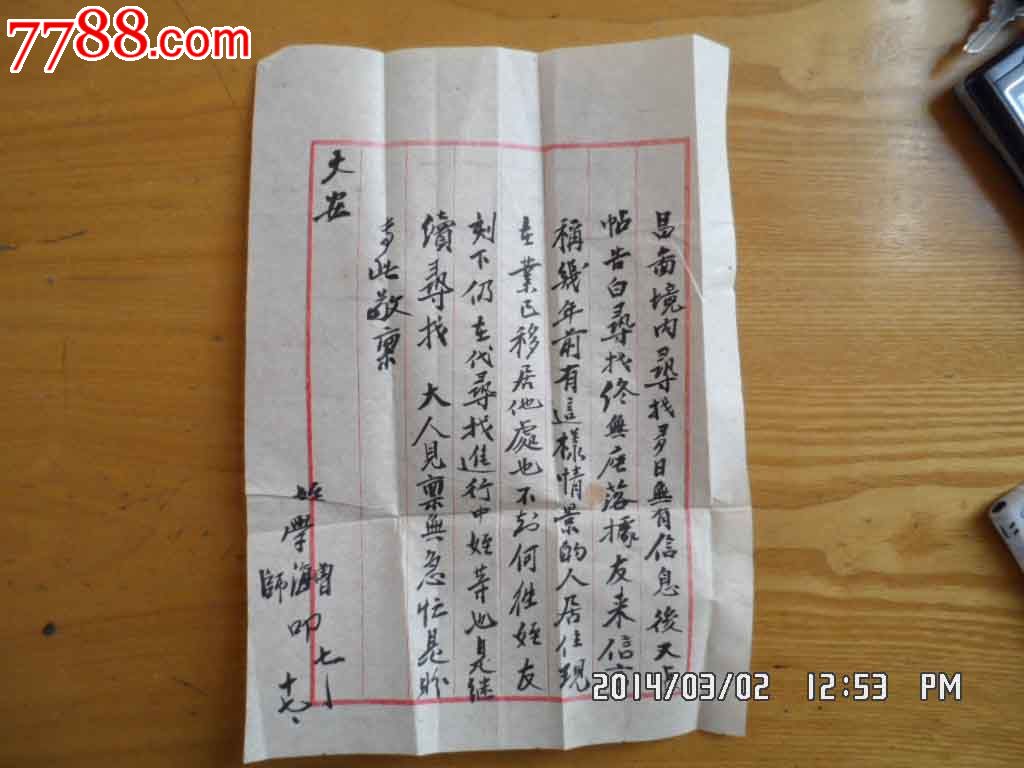 7788.com
昌南境内尋找多日無有信息後又
帖告白尋找終無座落據友来信
稱幾年前有這樣情景的人居住現
在業已移居他處也不知何往姪友
刻下仍在代尋找進行中姪等也見继
續尋找 大人見稟無急忙是盼
专此敬稟
天安
姪學
曾海師
叩七
十七、
2014/03/02 12:53 PM